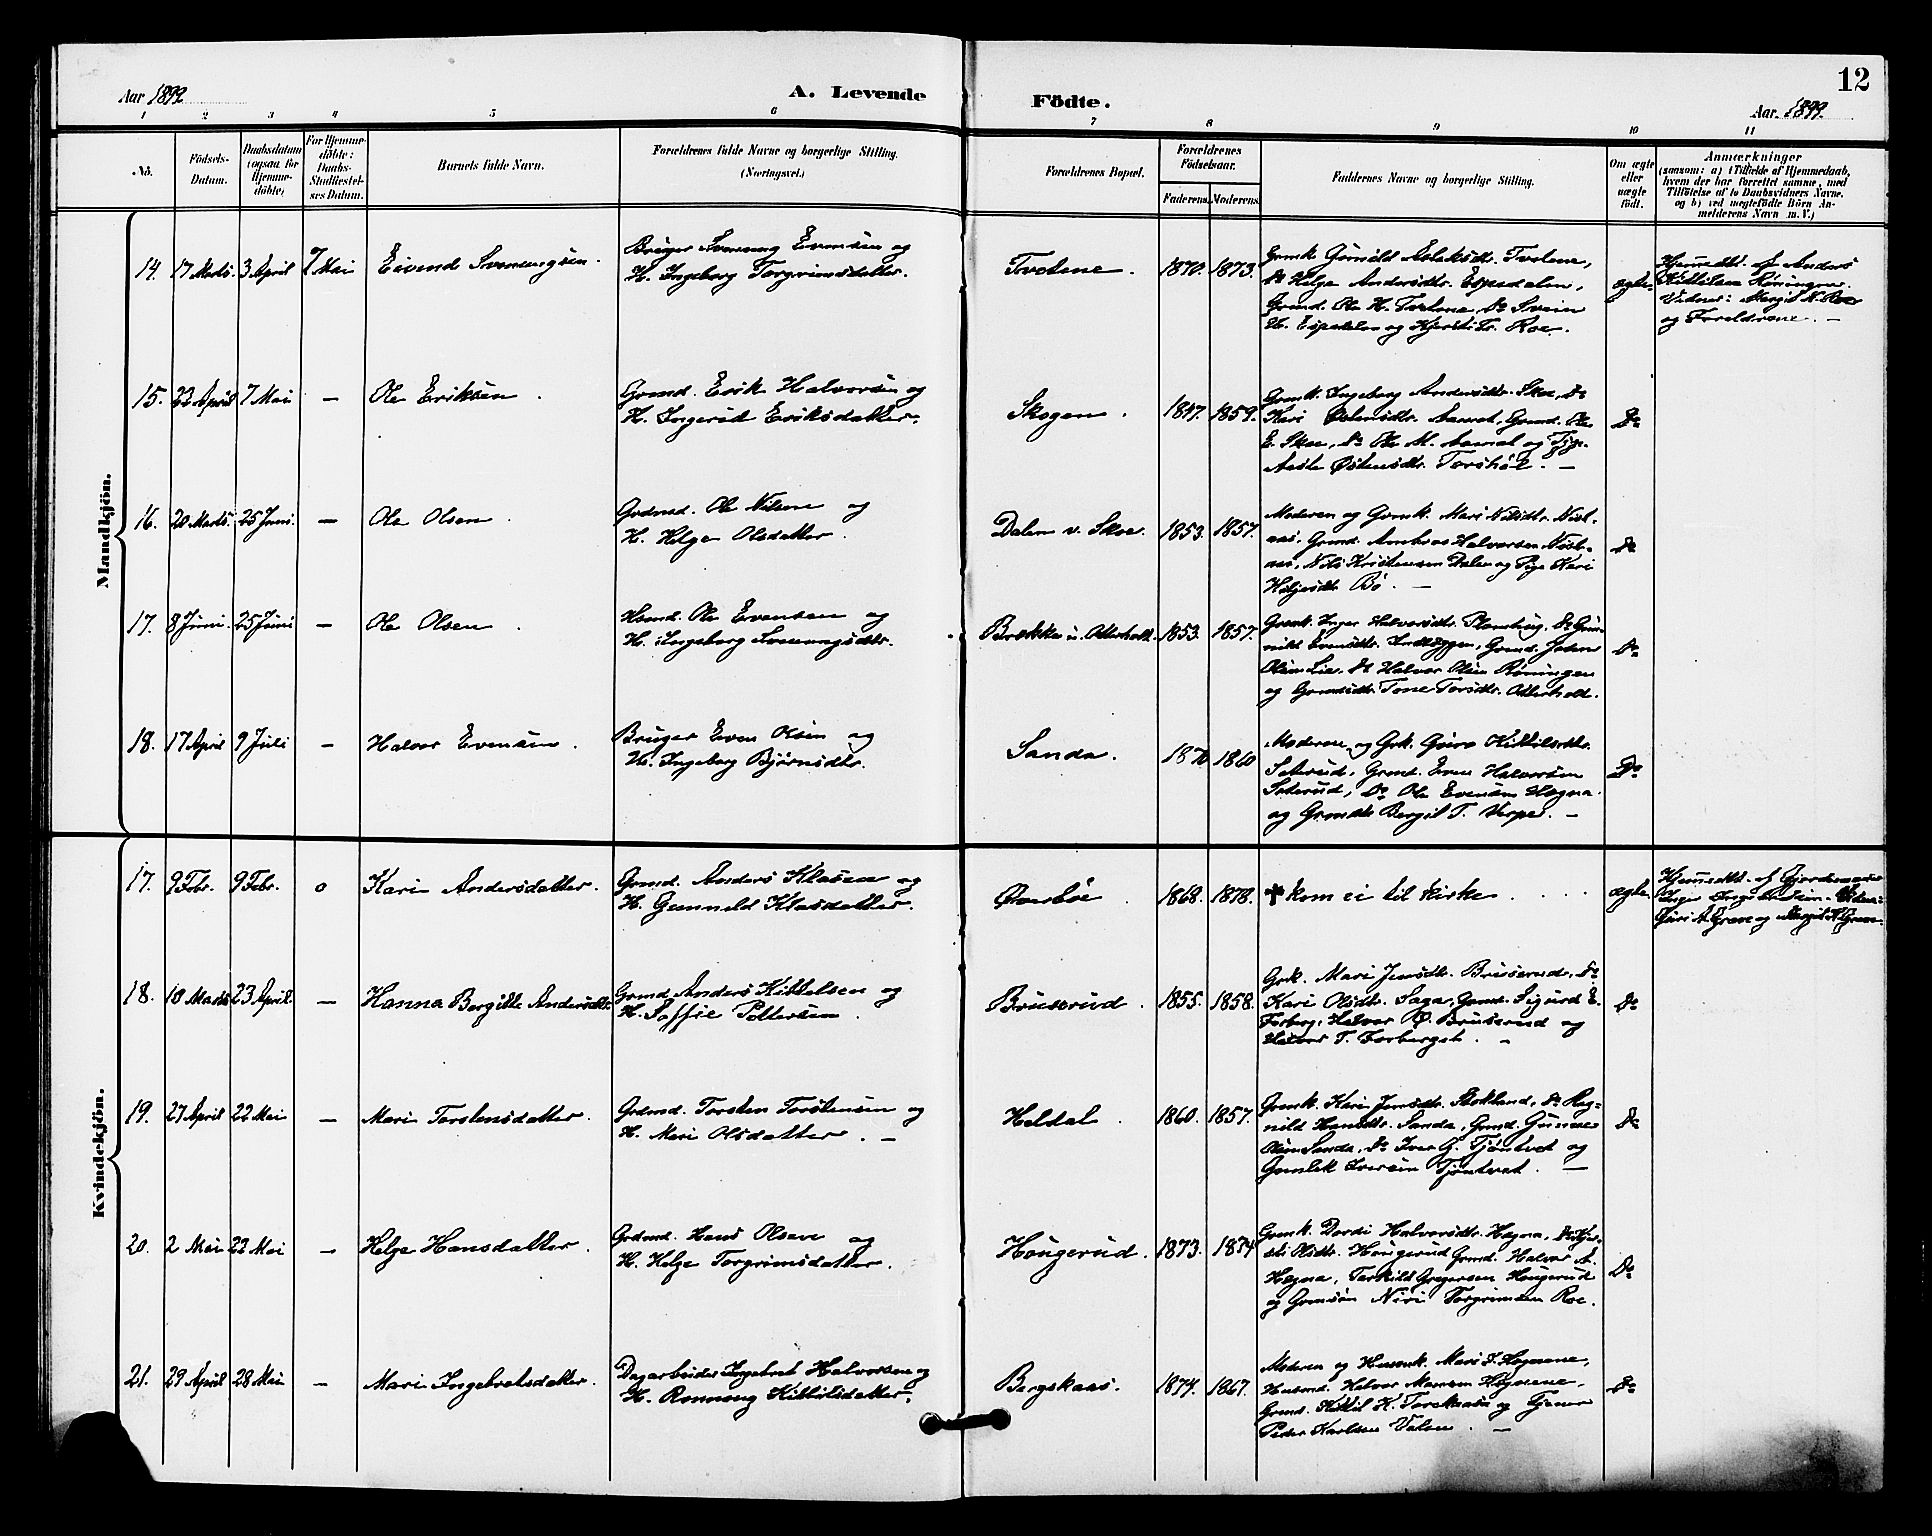 12
Aar 1899
A. Levende
Födte.
Aar 1899.
1 2 3 4 5 6 7 8 9 10 11
No.
Födsels-
Datum.
Daabsdatum
(ogsaa for
Hjemme-
döbte)
For Hjemme-
döbte:
Daabs-
Stadfæstel-
ses Datum.
Barnets fulde Navn.
Forældrenes fulde Navne og borgerlige Stilling.
(Næringsvei.)
Forældrenes Bopæl.
Forældrenes
Födselsaar.
Faderens. Moderens.
Faddernes Navne og borgerlige Stilling.
Om ægte
eller
uægte
født.
Anmærkninger
(saasom: a) i Tilfælde af Hjemmedaab,
hvem der har forrettet samme, med
Tilföielse af to Daabsvidners Navne,
og b) ved uægtefödte Börn An-
melderens Navn m. V.)
Mandkjön.
14. 17 Marts. 3 April 7 Mai Eivend Svenungsen.
Bruger Svenung Evensen og
H. Ingeborg Torgrimsdatter.
Tvetene. 1870. 1873.
Grmk. Gunild Aslaksdt. Tvetene,
Do Helge Andersdtr. Espedalen,
Grmd. Ole H. Tvetene, Do Svein
H. Espedalen og Kjersti Tr. Roe.
ægte.
Hjemmedbt. af Anders
Kittilsen Röningen.
Vidner: Margit N. Roe
og Foreldrene. —
15. 23 April 7 Mai — Ole Eriksen.
Grmd. Erik Halvorsen og
H. Ingerid Eriksdatter.
Skogen. 1847. 1859.
Grmk. Ingeborg Andersdtr. Skoe, Do
Kari Østensdtr. Aarvet, Grmd. Ole
E. Skoe, Do Ole M. Aarvet og Pige
Aaste Østensdtr. Torshol. —
Do
16. 20 Marts. 25 Juni. — Ole Olsen.
Grdmd. Ole Nilsen og
H. Helge Olsdatter.
Dalen v. Skoe. 1853. 1857.
Moderen og Grmk. Mari Nilsdtr. Nist-
aas, Grmd. Andreas Halvorsen Nist-
aas, Nils Kristensen Dalen og Pige Kari
Helgesdtr. Bö. —
Do
17. 8 Juni. 25 Juni — Ole Olsen.
Hsmd. Ole Evensen og
H. Ingeborg Svenungsdtr.
Brekke u. Otterholt. 1853. 1857.
Grmk. Inger Halvorsdtr. Plomhaug, Do Gun-
nild Evensdtr. Indlæggen, Grmd. Johan
Olsen Lia, Do Halvor Olsen Röningen
og Grmdsdtr. Tone Torsdtr. Otterholt.
Do
18. 17 April 9 Juli — Halvor Evensen.
Bruger Even Olsen og
H. Ingeborg Björnsdtr.
Sanda. 1870 1860
Moderen og Grk. Guro Kittilsdtr.
Seterud, Grmd. Even Halvorsen
Seterud, Do Ole Evensen Hægna
og Grmdtr. Bergit T. Verpe. —
Do
Kvindekjön.
17. 9 Febr. 9 Febr. o Kari Andersdatter.
Grmd. Anders Klasen og
H. Gunnild Klasdatter.
Overböe. 1868. 1878.
✝ kom ei til kirke
ægte.
Hjemmedbt. af Gjordemoder
Inger
Guri A. Grave og Margit K. Grave.
18. 10 Marts 23 April. — Hanna Bergitte Andersdtr.
Grmd. Anders Kittelsen og
H. Soffie Pettersen.
Bruserud. 1855. 1858.
Grk. Mari Jensdtr. Bruserud, Do
Kari Olsdtr. Saga, Grmd. Sigurd E.
Forberg, Halvor Ø. Bruserud og
Halvor T. Forbergst. —
Do
19. 27 April 22 Mai — Mari Torstensdatter.
Grdmd. Torsten Torstensen og
H. Mari Olsdatter. —
Heldal. 1860. 1857.
Grmk. Kari Jensdtr. Stokland, Do Rag-
nild Hansdtr. Sanda, Grmd. Gunnar
Olsen Sanda, Do Iver G. Tjöntvet og
Gunlek Iversen Tjöntvet. —
Do
20. 2 Mai 22 Mai — Helge Hansdatter.
Grdmd. Hans Olsen og
H. Helge Torgrimsdatter.
Haugerud. 1873. 1874
Grmk. Dordi Halvorsdtr. Hægna, Do Kjer-
sti Olsdtr. Haugerud Grmd. Halvor A.
Hægna, Terkild Gregersen Haugerud
og Grmsön Niri Torgrimsen Roe.
Do
21. 29 April 28 Mai — Mari Ingebretsdatter.
Dagarbeider Ingebret Halvorsen og
H. Rønnaug Kittilsdatter.
Bergskaas. 1874. 1867.
Moderen og Husmk. Mari J. Hægnene,
Husmd. Halvor Hægnene,
Grmd. Kittil K. Torskaasa og Tjener
Peder Karlsen Valen. —
Do